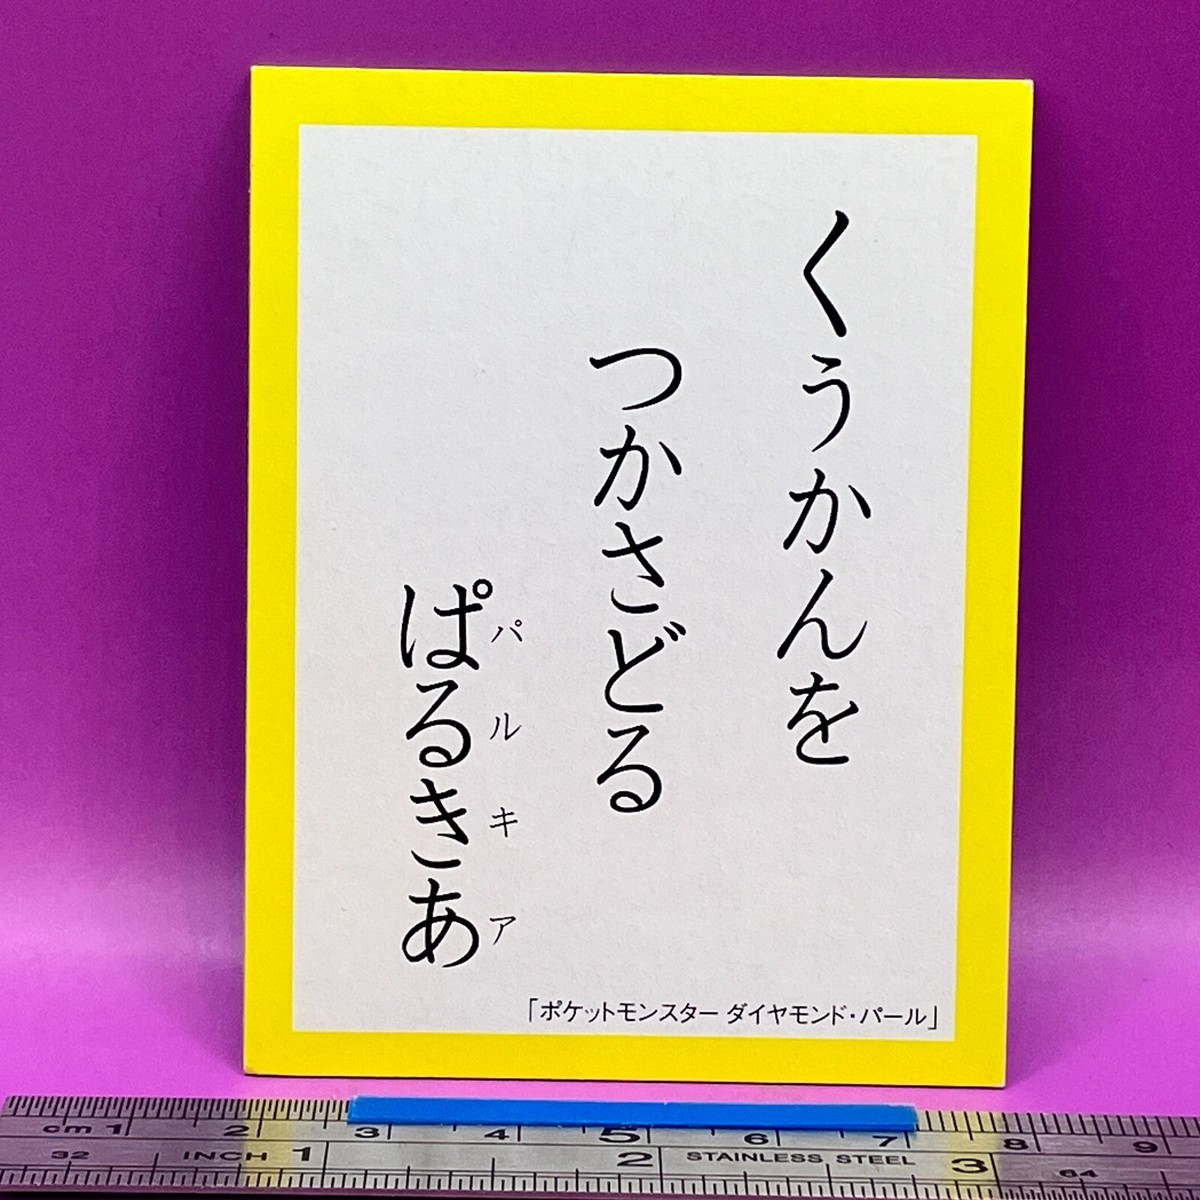 くうかんを
つかさどる
ぱるきあ
パルキア
「ポケットモンスター ダイヤモンド・パール」
cm 1 2 3 4 5 6 7 8 9
32 INCH 1 2 STAINLESS STEEL 3 64